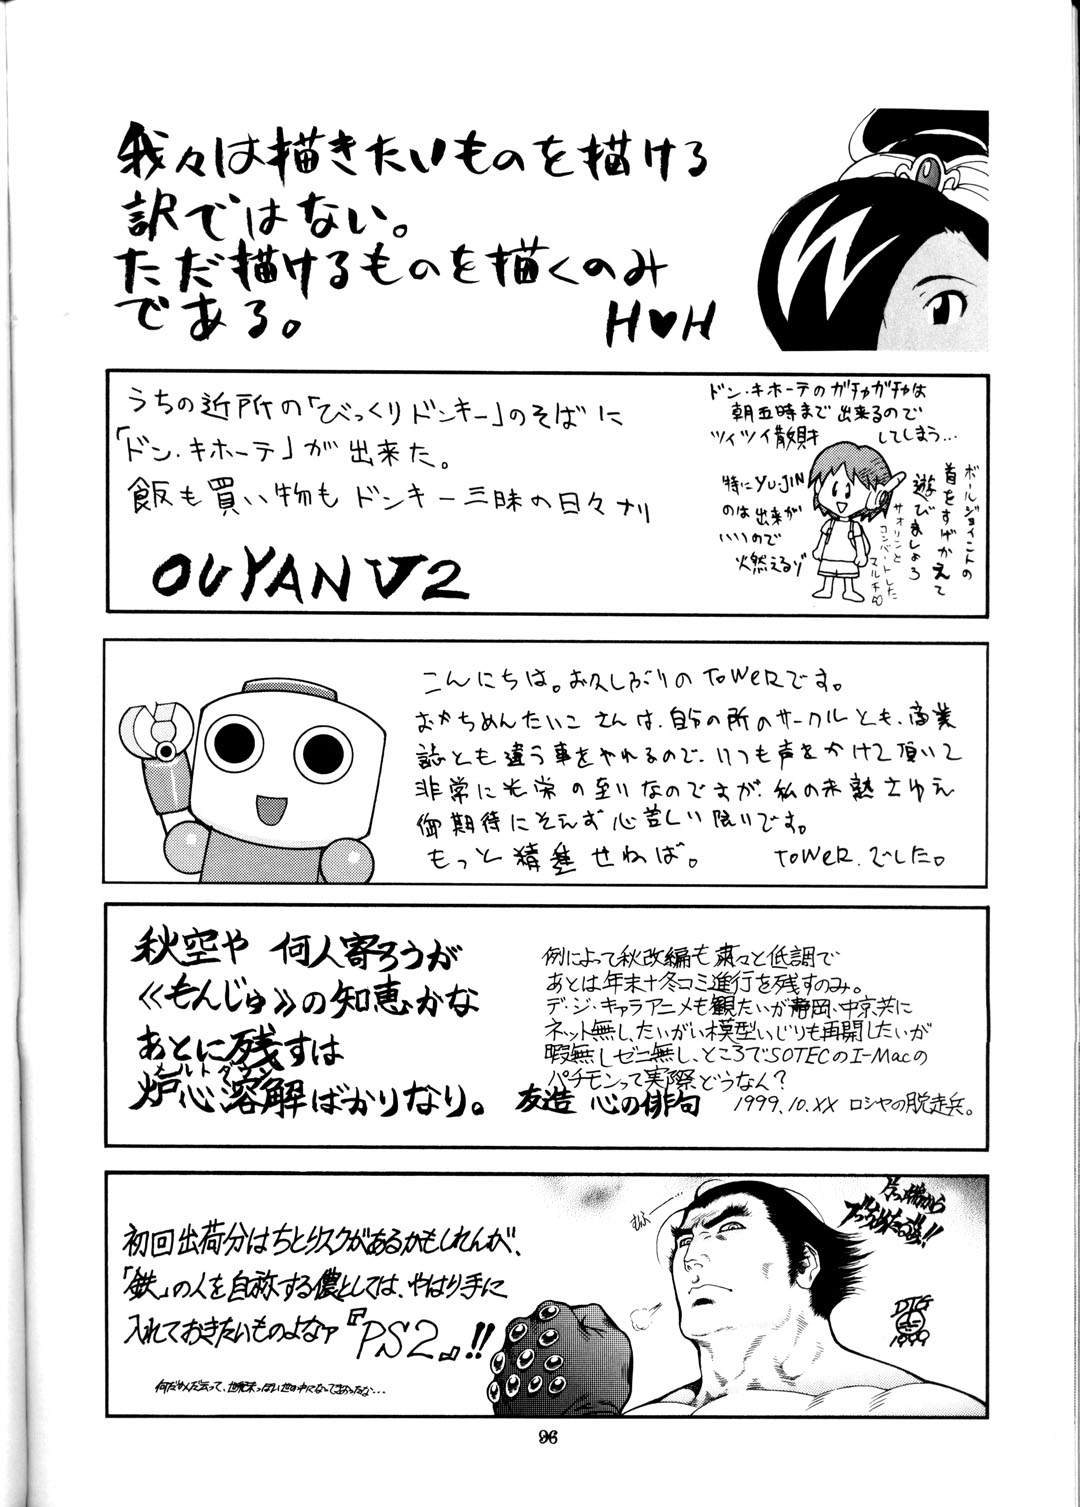 我々は描きたいものを描ける
訳ではない。
ただ描けるものを描くのみ
である。
H♥H
うちの近所の「びっくりドンキー」のそばに
「ドン・キホーテ」が出来た。
飯も買い物もドンキー三昧の日々ナリ
OUYAN V2
ドン・キホーテのガチャガチャは
朝五時まで出来るので
ツイツイ散財してしまう…
特にYUJIN
のは出来が
いいので
火燃えるゾ
ボールジョイントの
首をすげかえて
遊びましょろ
サオリンと
コンバートした
マルチ
こんにちは。お久しぶりのToWeRです。
おかちめんたいこさんは、自分の所のサークルとも、商業
誌とも違う事をやれるので、いつも声をかけて頂いて
非常に光栄の至りなのですが、私の未熟さゆえ
御期待にそえず心苦しい限りです。
もっと精進せねば。
ToWeR.でした。
秋空や 何人寄ろうが
≪もんじゅ≫の知恵かな
あとに残すは
メルトダウン
炉心溶解ばかりなり。
友造 心の俳句
例によって秋改編も粛々と低調で
あとは年末+冬コミ進行を残すのみ。
デ・ジ・キャラアニメも観たいが静岡、中京共に
ネット無し、たいがい模型いじりも再開したいが
暇無しゼニ無し、ところでSOTECのI-Macの
パチモンって実際どうなん?
1999.10.XX ロシヤの脱走兵。
初回出荷分はちとリスクがあるかもしれんが、
「鉄」の人を自称する儂としては、やはり手に
入れておきたいものよなァ『PS2』!!
むふぅ
DTG
1999
96